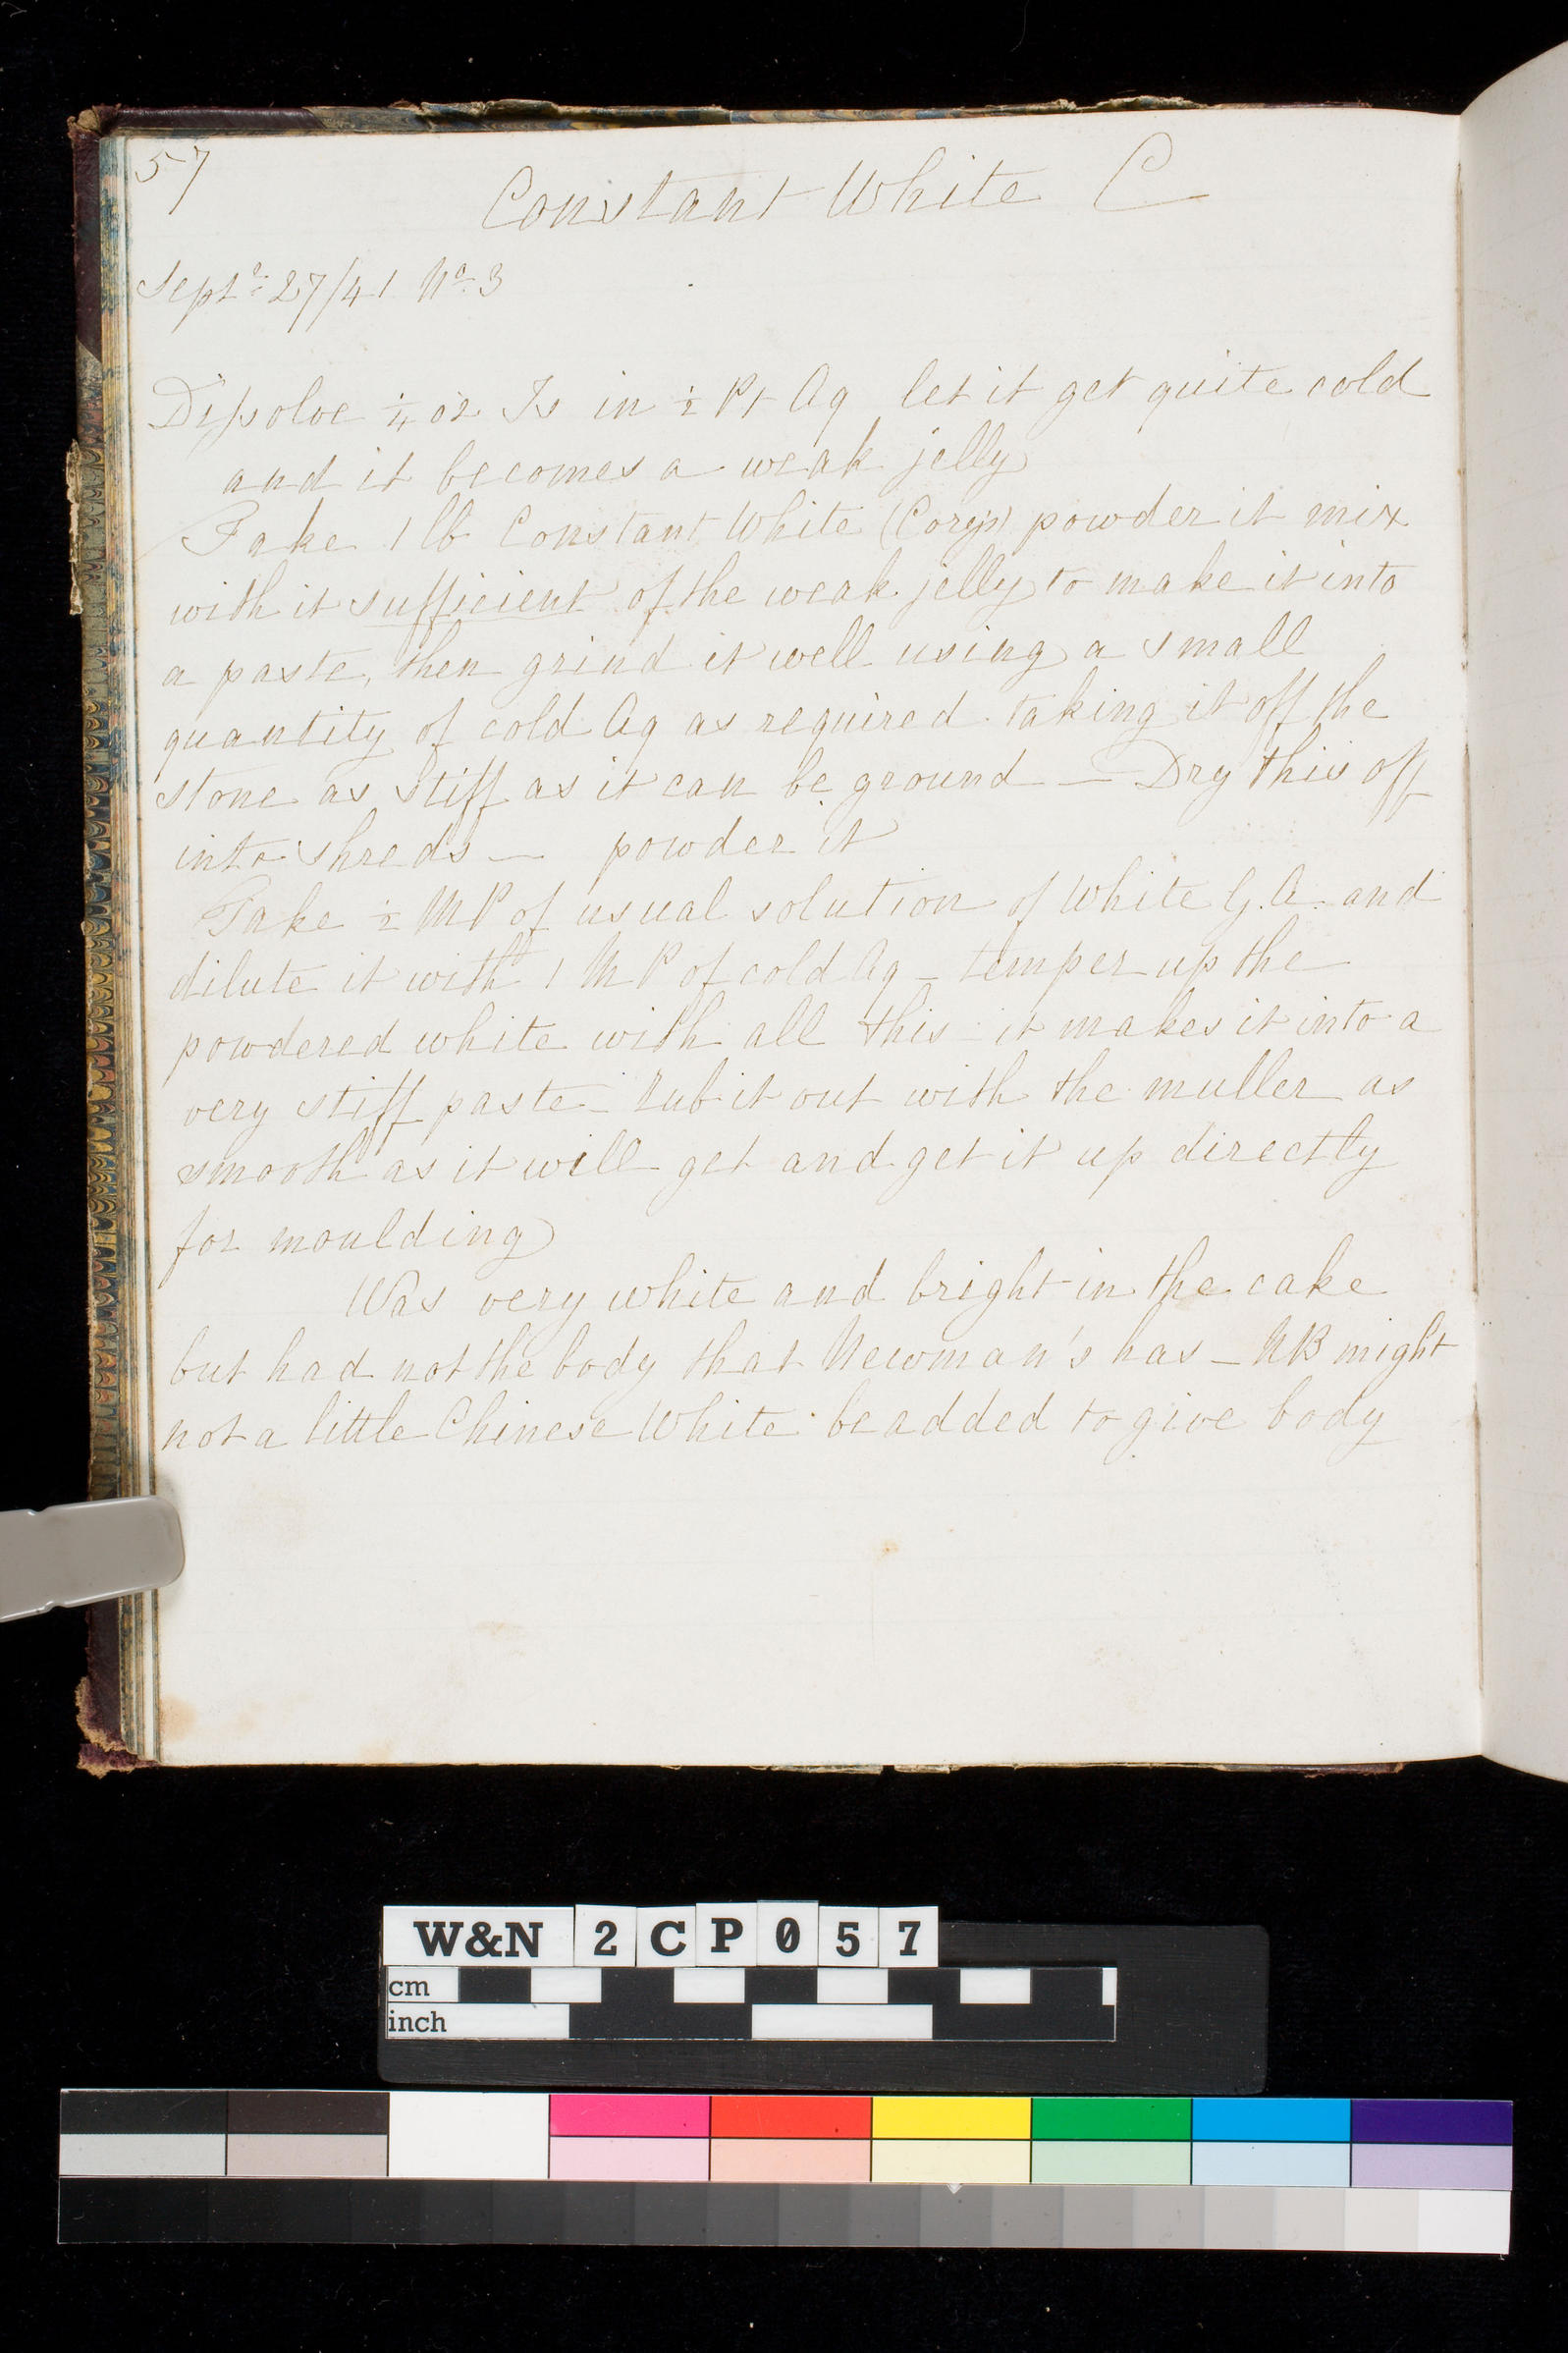 57
Constant White C
Septr 27/41 No 3
Dissolve 1/4 oz Is in 1/2 Pt Aq let it get quite cold
and it becomes a weak jelly
Take 1 lb Constant White (Cory's) powder it mix
with it sufficient of the weak jelly to make it into
a paste, then grind it well using a small
quantity of cold Aq as required. taking it off the
stone as stiff as it can be ground — Dry this off
into shreds — powder it
Take 1/2 MP of usual solution of White G.A. and
dilute it with 1 MP of cold Aq — temper up the
powdered white with all this - it makes it into a
very stiff paste - Rub it out with the muller as
smooth as it will get and get it up directly
for moulding
Was very white and bright in the cake
but had not the body that Newman's has — NB might
not a little Chinese White be added to give body
W&N 2CP057
cm
inch